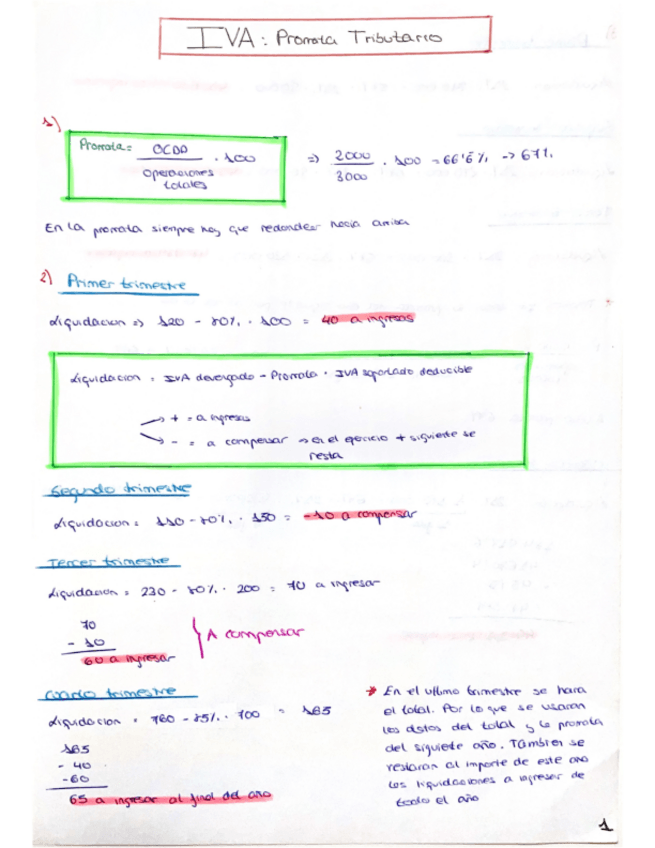 IVA: Prorrata Tributario
1)
Prorrata = OCDD / operaciones totales . 100 => 2000 / 3000 . 100 = 66'6% -> 67%
En la prorrata siempre hay que redondear hacia arriba
2) Primer trimestre
Liquidacion => 120 - 80% . 100 = 40 a ingresos
Liquidacion = IVA devengado - Prorrata . IVA soportado deducible
-> + = a ingresos
-> - = a compensar -> en el ejercicio + siguiente se
resta
Segundo trimestre
Liquidacion = 110 - 80% . 150 = -10 a compensar
Tercer trimestre
Liquidacion = 230 - 80% . 200 = 70 a ingresar
70
- 10
60 a ingresar
} A compensar
Cuarto trimestre
Liquidacion = 760 - 85% . 700 = 165
165
- 40
- 60
65 a ingresar al final del año
* En el ultimo trimestre se hara
el total. Por lo que se usaran
los datos del total y la prorrata
del siguiente año. Tambien se
restaran al importe de este año
las liquidaciones a ingresar de
todo el año
1